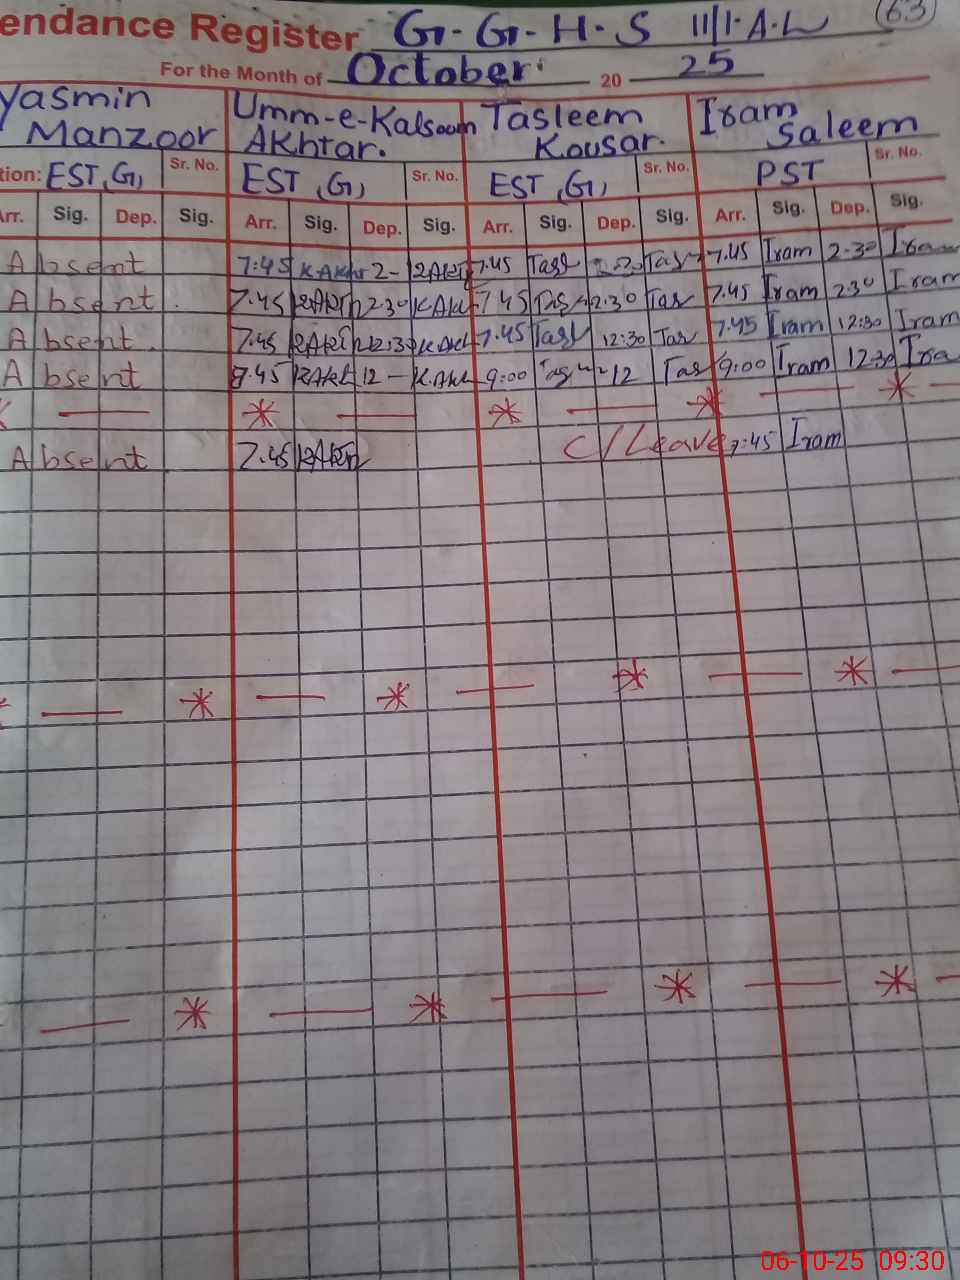 endance Register G. G. H. S 11/1.A.L 63
For the Month of October 20 25
Yasmin Umm-e-Kalsoom Tasleem Iram
Manzoor Akhtar. Kousar. Saleem
tion: EST, G, Sr. No. EST, G, Sr. No. EST, G, Sr. No. PST Sr. No.
Arr. Sig. Dep. Sig. Arr. Sig. Dep. Sig. Arr. Sig. Dep. Sig. Arr. Sig. Dep. Sig.
Absent 7:45 7.45 7.45 Iram 2.30 Iram
Absent 7.45 12.30 7.45 12.30 Tas 7.45 Iram 230 Iram
Absent 7.45 12.30 7.45 12:30 Tas 7.45 Iram 12:30 Iram
Absent 9.45 12 9:00 12 Tas 9:00 Iram 12.30 Ira
Absent 7.45 C/Leave 7:45 Iram
06-10-25 09:30